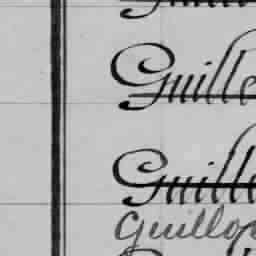 Guille
Guille
Guillo